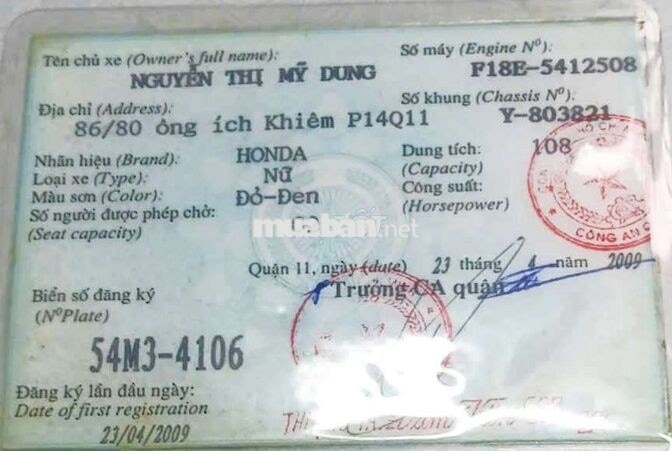 Tên chủ xe (Owner's full name):
NGUYỄN THỊ MỸ DUNG
Số máy (Engine Nº):
F18E-5412508
Địa chỉ (Address):
86/80 ông ích Khiêm P14Q11
Số khung (Chassis Nº):
Y-803821
Nhãn hiệu (Brand): HONDA
Dung tích: 108
(Capacity)
Loại xe (Type): Nữ
Màu sơn (Color): Đỏ-Đen
Công suất:
(Horsepower)
Số người được phép chở:
(Seat capacity)
muaban.net
Quận 11, ngày (date) 23 tháng 4 năm 2009
Trưởng CA quận
Biển số đăng ký
(NºPlate)
54M3-4106
Đăng ký lần đầu ngày:
Date of first registration
23/04/2009
CÔNG AN